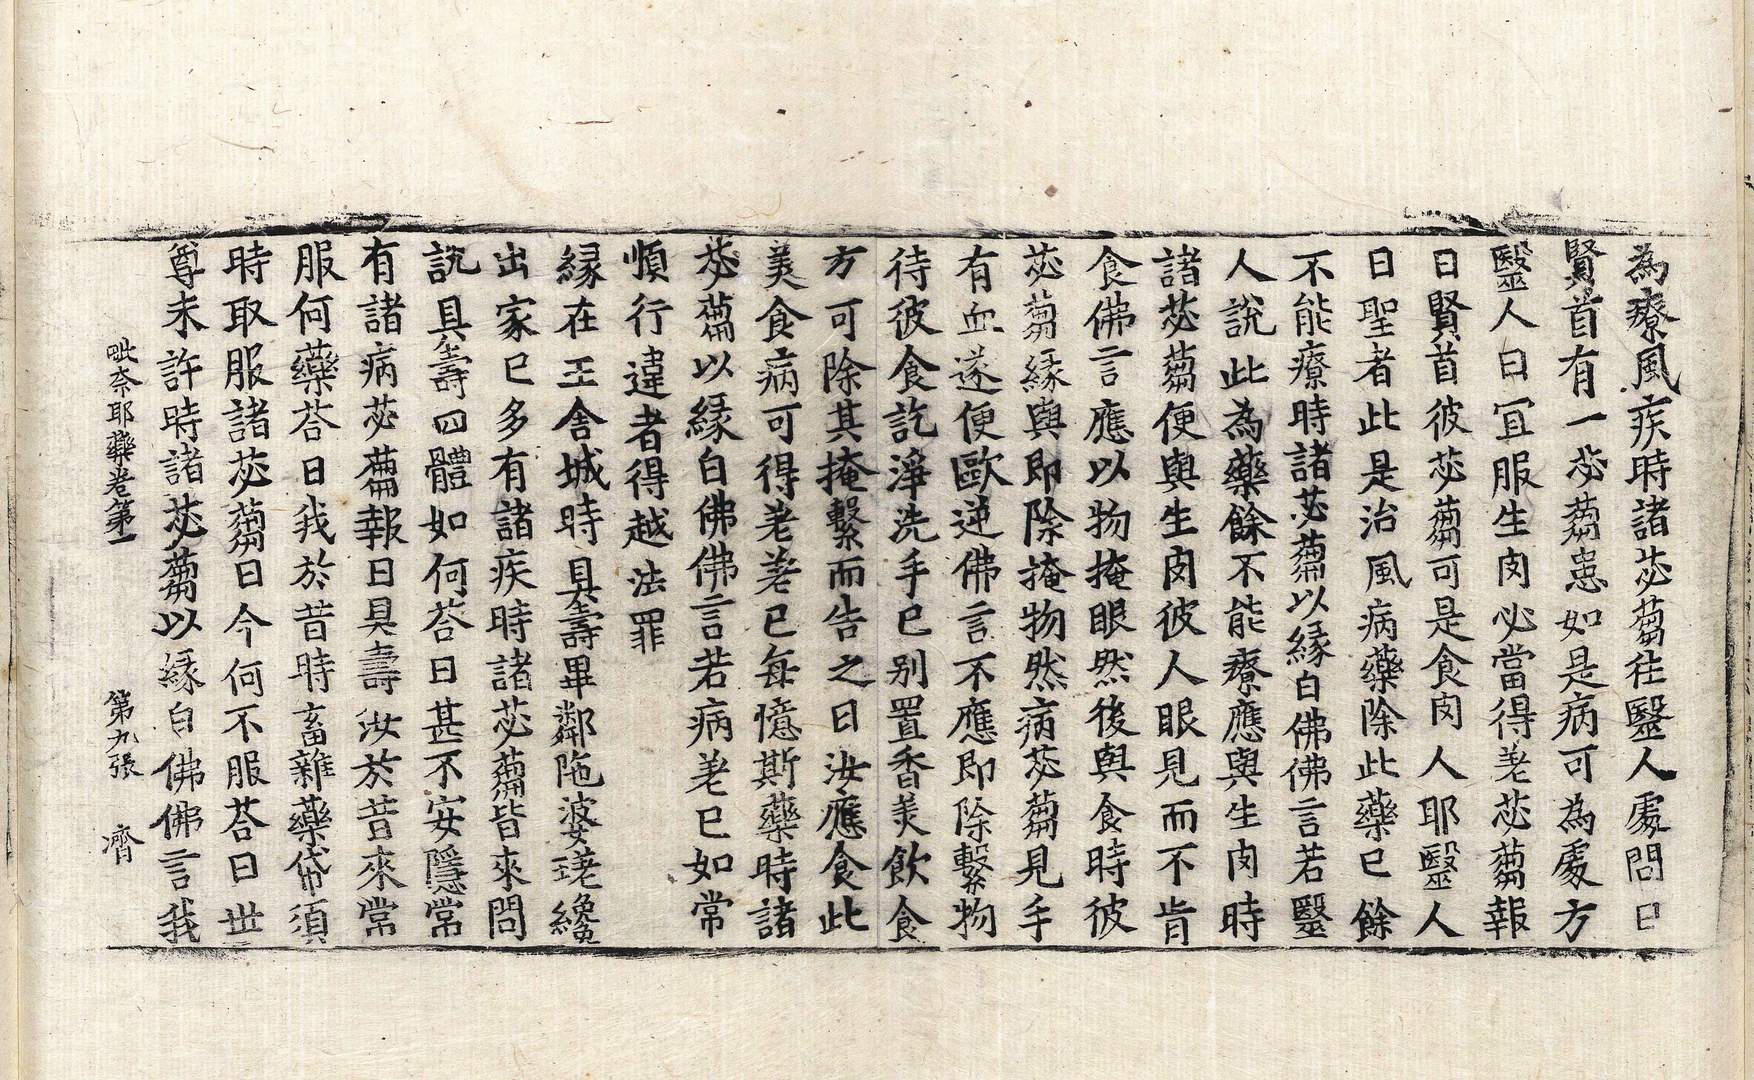 為療風疾時諸苾蒭往醫人處問曰
賢首有一苾蒭患如是病可為處方
醫人曰宜服生肉必當得差苾蒭報
曰賢首彼苾蒭可是食肉人耶醫人
曰聖者此是治風病藥除此藥已餘
不能療時諸苾蒭以緣白佛佛言若醫
人說此為藥餘不能療應與生肉時
諸苾蒭便與生肉彼人眼見而不肯
食佛言應以物掩眼然後與食時彼
苾蒭緣與即除掩物然病苾蒭見手
有血遂便歐逆佛言不應即除繫物
待彼食訖淨洗手已別置香美飲食
方可除其掩繫而告之曰汝應食此
美食病可得差差已每憶斯藥時諸
苾蒭以緣白佛佛言若病差已如常
順行違者得越法罪
緣在王舍城時具壽畢鄰陁婆蹉纔
出家已多有諸疾時諸苾蒭皆來問
說具壽四體如何荅曰甚不安隱常
有諸病苾蒭報曰具壽汝於昔來常
服何藥荅曰我於昔時畜雜藥帒須
時取服諸苾蒭曰今何不服荅曰世
尊未許時諸苾蒭以緣白佛佛言我
毗奈耶藥卷第一 第九張 濟